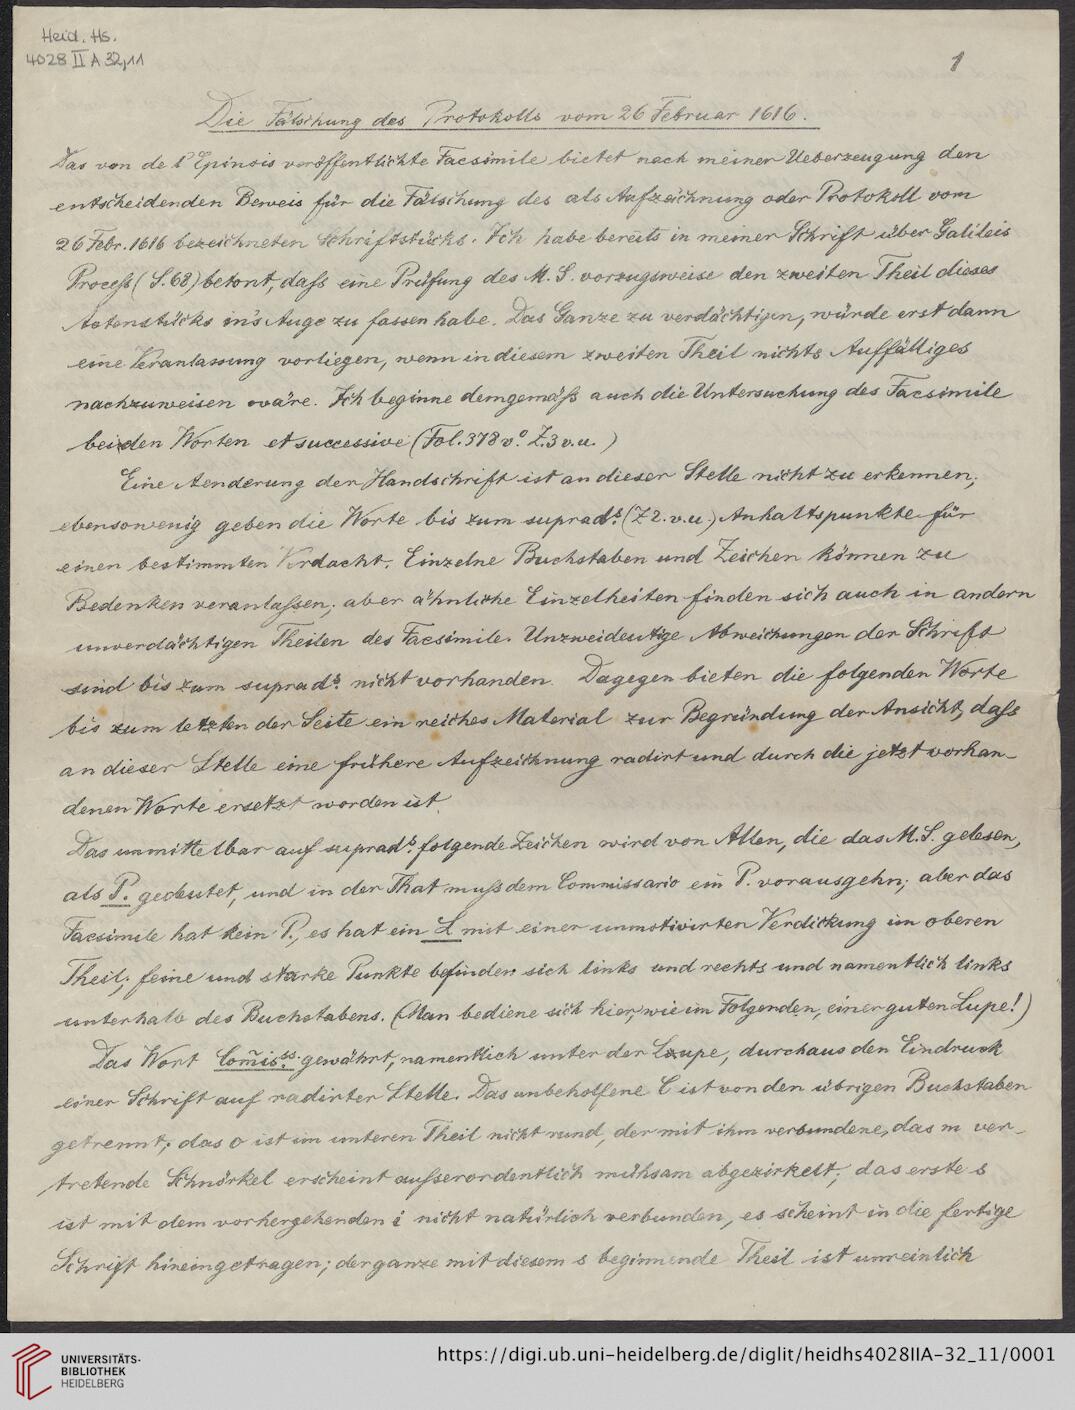 Heid. Hs.
4028 II A 32,11
1
Die Fälschung des Protokolls vom 26 Februar 1616.
Das von de l'Epinois veröffentlichte Facsimile bietet nach meiner Ueberzeugung den
entscheidenden Beweis für die Fälschung des als Aufzeichnung oder Protokoll vom
26 Febr. 1616 bezeichneten Schriftstücks. Ich habe bereits in meiner Schrift über Galileis
Proceß (S. 68) betont, daß eine Prüfung des M. S. vorzugsweise den zweiten Theil dieses
Actenstücks in's Auge zu fassen habe. Das Ganze zu verdächtigen, würde erst dann
eine Veranlassung vorliegen, wenn in diesem zweiten Theil nichts Auffälliges
nachzuweisen wäre. Ich beginne demgemäß auch die Untersuchung des Facsimile
bei den Worten et successive (Fol. 378 v.º Z. 3 v. u. )
Eine Aenderung der Handschrift ist an dieser Stelle nicht zu erkennen;
ebensowenig geben die Worte bis zum supradˢ. (Z 2. v. u.) Anhaltspunkte für
einen bestimmten Verdacht. Einzelne Buchstaben und Zeichen können zu
Bedenken veranlaßen; aber ähnliche Einzelheiten finden sich auch in andern
unverdächtigen Theilen des Facsimile. Unzweideutige Abweichungen der Schrift
sind bis zum supradˢ. nicht vorhanden. Dagegen bieten die folgenden Worte
bis zum letzten der Seite ein reiches Material zur Begründung der Ansicht, daß
an dieser Stelle eine frühere Aufzeichnung radirt und durch die jetzt vorhan-
denen Worte ersetzt worden ist.
Das unmittelbar auf supradˢ. folgende Zeichen wird von Allen, die das M. S. gelesen,
als P. gedeutet, und in der That muß dem Commissario ein P. vorausgehn; aber das
Facsimile hat kein P., es hat ein L mit einer unmotivirten Verdickung im oberen
Theil; feine und starke Punkte befinden sich links und rechts und namentlich links
unterhalb des Buchstabens. (Man bediene sich hier, wie im Folgenden, einer guten Lupe!)
Das Wort Com̃isˢˢ. gewährt, namentlich unter der Loupe, durchaus den Eindruck
einer Schrift auf radirter Stelle. Das unbeholfene C ist von den übrigen Buchstaben
getrennt; das o ist im unteren Theil nicht rund, der mit ihm verbundene, das m ver-
tretende Schnörkel erscheint außerordentlich mühsam abgezirkelt; das erste s
ist mit dem vorhergehenden i nicht natürlich verbunden, es scheint in die fertige
Schrift hineingetragen; der ganze mit diesem s beginnende Theil ist unreinlich
UNIVERSITÄTS-
BIBLIOTHEK
HEIDELBERG
https://digi.ub.uni-heidelberg.de/diglit/heidhs4028IIA-32_11/0001